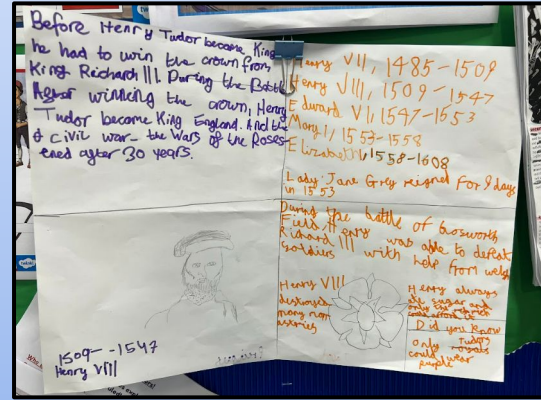 Before Henry Tudor become King
he had to win the crown from
King Richard III. During the Battle
After winning the crown, Henry
Tudor become King England. And the
civil war - the Wars of the Roses
ened after 30 years.
Henry VII, 1485-1509
Henry VIII, 1509-1547
Edward VI, 1547-1553
Mary I, 1553-1558
Elizabeth I, 1558-1608
Lady Jane Grey reigned For 9 days
in 1553
During the battle of bosworth
Field, Henry was able to defeat
Richard III with help from welsh
soldiers
Henry VIII
destroyed
many mon
asteries
Henry always
sugar and
only the rich
could afford
Did you know
only Tudor
royals
could wear
purple
1509--1547
Henry VIII